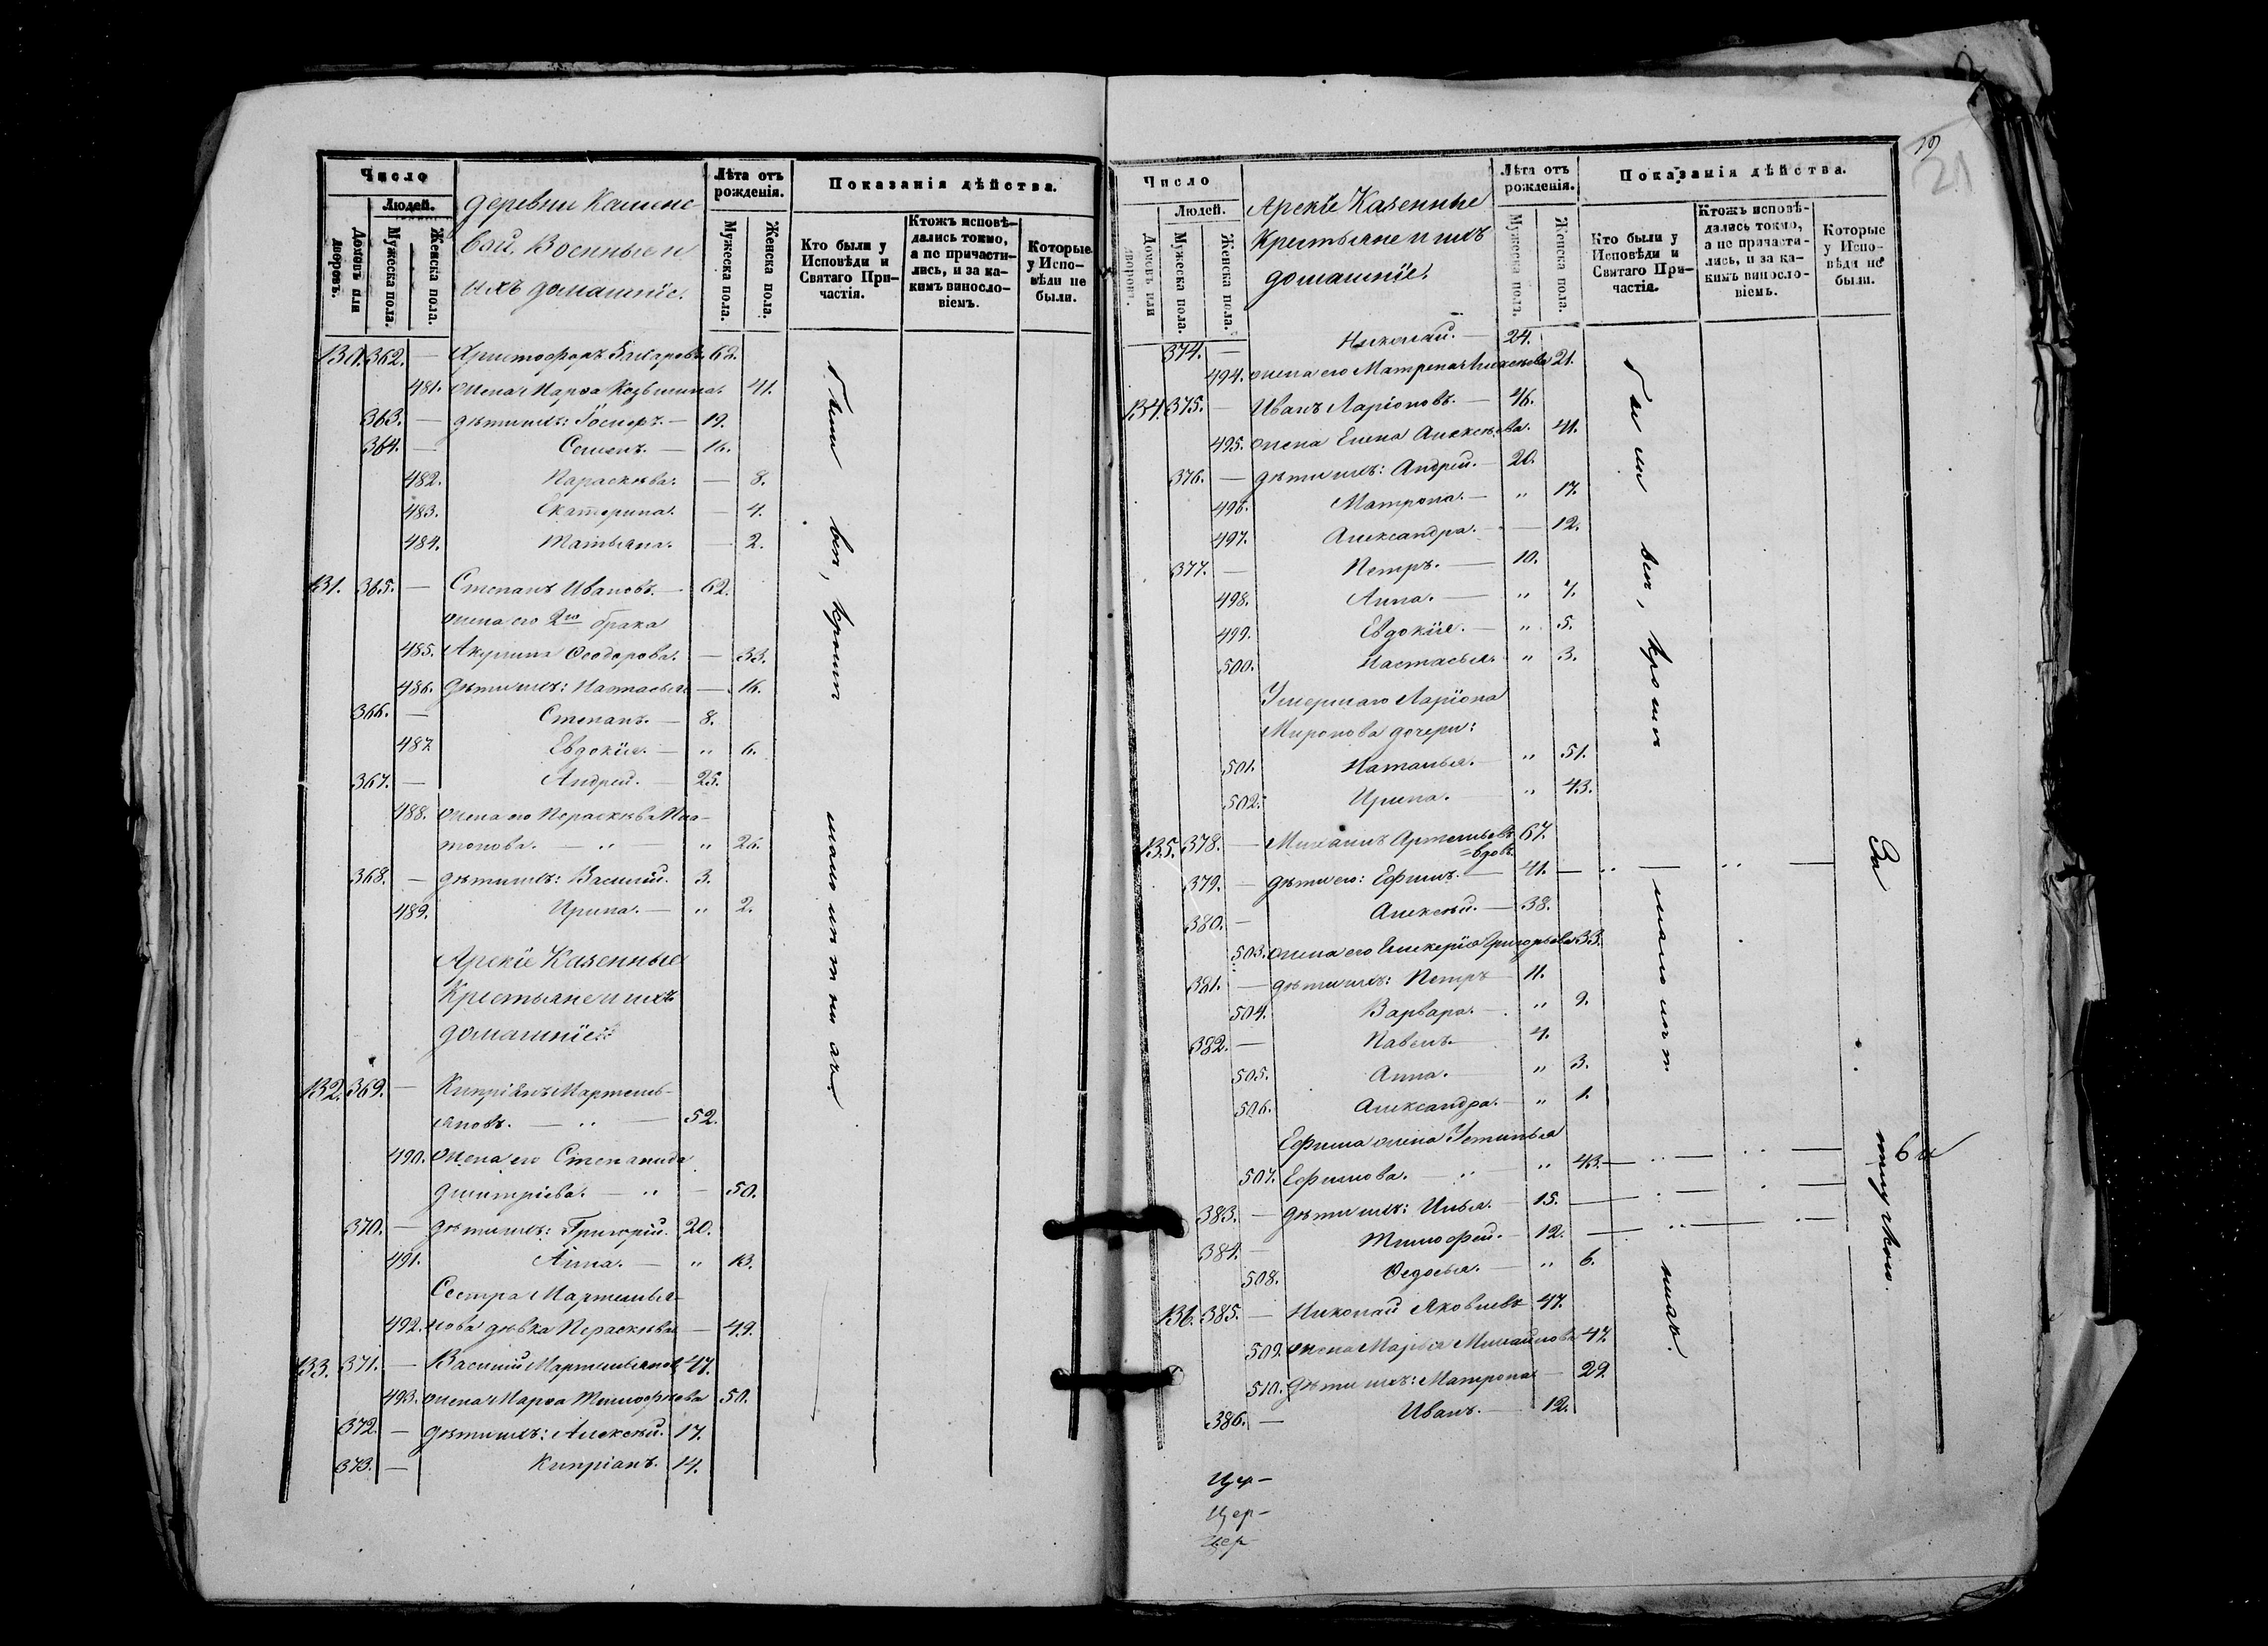 Число
Людей.
Домовъ или дворовъ.
Мужеска пола.
Женска пола.
деревни Каменс-
кой, Военные и
ихъ домашніе.
Лѣта отъ рожденія.
Мужеска пола.
Женска пола.
Показанія дѣйства.
Кто были у Исповѣди и Святаго При-частія.
Ктожъ исповѣ-дались токмо, а не причасти-лись, и за ка-кимъ винносло-віемъ.
Которые у Испо-вѣди не были.
130. 362. — Христофоръ Захаровъ 62.
481. жена Марѳа Козьмина. 41.
363. — дѣти ихъ: — 19.
364. — Семенъ. — 16.
482. Параскѣва. — 8.
483. Екатерина. — 4.
484. Татьяна. — 2.
131. 365. — Степанъ Ивановъ. — 62.
жена его 2го брака
485. Акулина Ѳеодорова. — 33.
486. дѣти ихъ: Настасья — 16.
366. — Степанъ. — 8.
487. Евдокія. — „ 6.
367. — Андрей. — 25.
488. жена его Параскѣва Пла-
тонова. — „ — „ 26.
368. — дѣти ихъ: Василій. 3.
489. Ирина. — „ 2.
Арскіе Казенные
Крестьяне и ихъ
домашніе:
132. 369. — Кипріянъ Мартемь-
яновъ. — „ — 52.
490. жена его Степанида
Димитріева. — „ — 50.
370. — дѣти ихъ: Григорій. 20.
491. Анна. — „ 13.
Сестра Мартемья-
492. нова дѣвка Параскѣва — 49.
133. 371. — Василій Мартемьяновъ 47.
493. жена Марѳа Тимофѣева 50.
372. — дѣти ихъ: Алексѣй. 17.
373. — Кипріанъ. 14.
были всѣ, кромѣ малолѣтныхъ.
19
21
Число
Людей.
Домовъ или дворовъ.
Мужеска пола.
Женска пола.
Арскіе Казенные
Крестьяне и ихъ
домашніе.
Лѣта отъ рожденія.
Мужеска пола.
Женска пола.
Показанія дѣйства.
Кто были у Исповѣди и Святаго При-частія.
Ктожъ исповѣ-дались токмо, а не причасти-лись, и за ка-кимъ винносло-віемъ.
Которые у Испо-вѣди не были.
374. — Николай. — 24.
494. жена его Матрена Алексѣева 21.
134. 375. — Иванъ Ларіоновъ. — 46.
495. жена Елена Алексѣева. 41.
376. — дѣти ихъ: Андрей. — 20.
496. Матрона. — „ 17.
497. Александра. — 12.
377. — Петръ. — 10.
498. Анна. — „ 7.
499. Евдокія. — „ 5.
500. Настасья. „ 3.
Умершаго Ларіона
Миронова дочери:
501. Наталья. — „ 51.
502. Ирина. „ 43.
135. 378. — Михаилъ Артемьевъ 67.
=вдовъ
379. — дѣти его: Ефимъ. — 41. — „ — „ —
380. — Алексѣй. — 38.
503. жена его Гликерія Григорьева 33.
381. — дѣти ихъ: Петръ — 11.
504. Варвара. — „ 9.
382. — Павелъ. 4.
505. Анна. — „ 3.
506. Александра. — „ 1.
Ефима жена Устинья
507. Ефимова. „ „ 43. — „ — „ —
383. — дѣти ихъ: Илья. — 15. — „ — „ —
384. — Тимофей. — 12. — „ — „ —
508. Ѳедосья. — „ 6.
136. 385. — Николай Яковлевъ 47.
509. жена Марья Михайлова 47.
510. дѣти ихъ: Матрона — 29.
386. — Иванъ. — 12.
были всѣ, кромѣ малолѣтныхъ.
За отлучкою.
Цер-
Цер-
Цер-